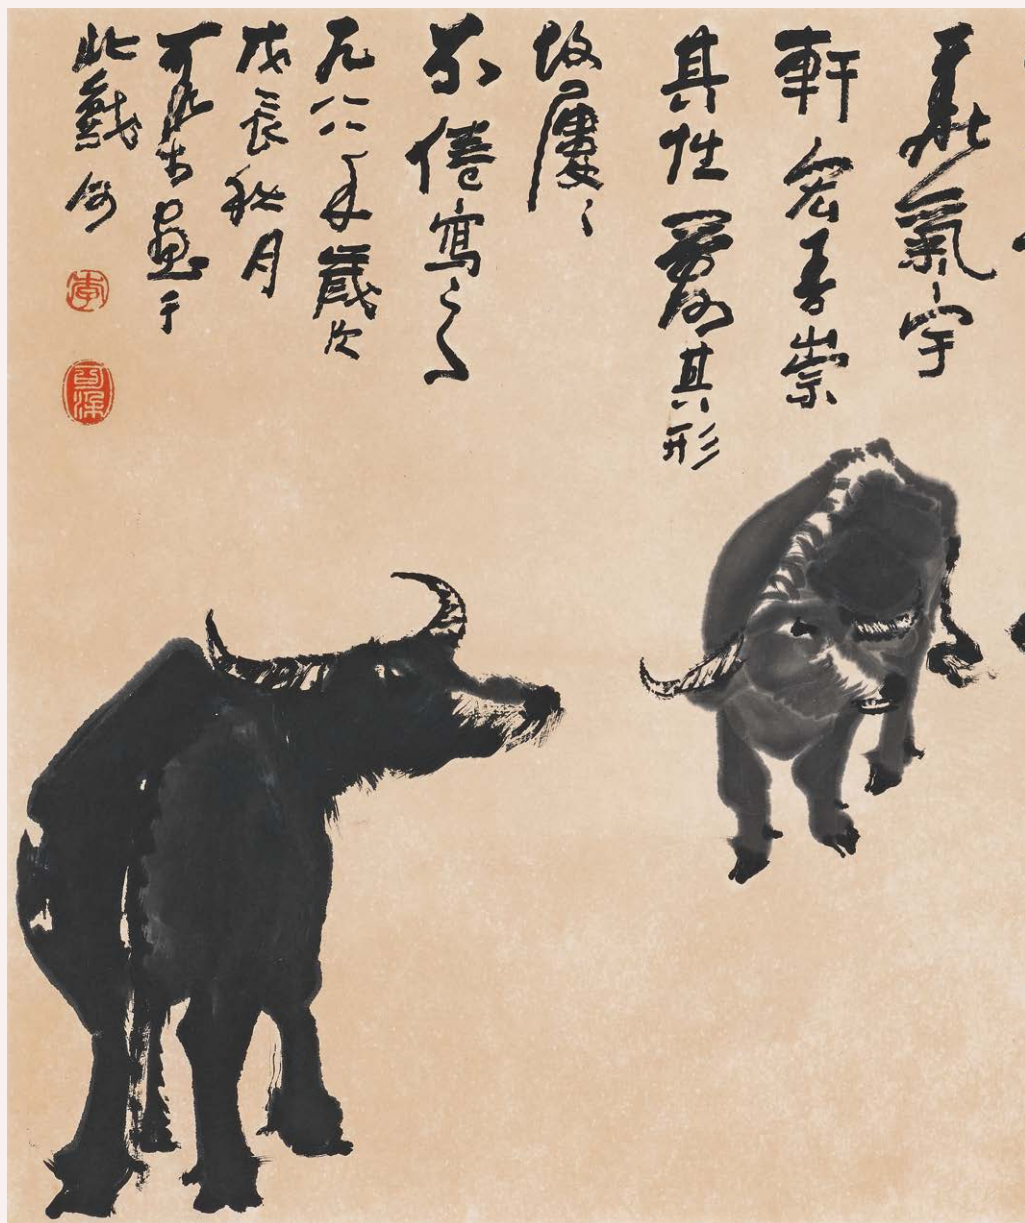 華氣宇
軒宏吾崇
其性愛其形
故屢〻
不倦寫之一
九八八年歲次
戊辰秋月
可染畫于
北戴河
李